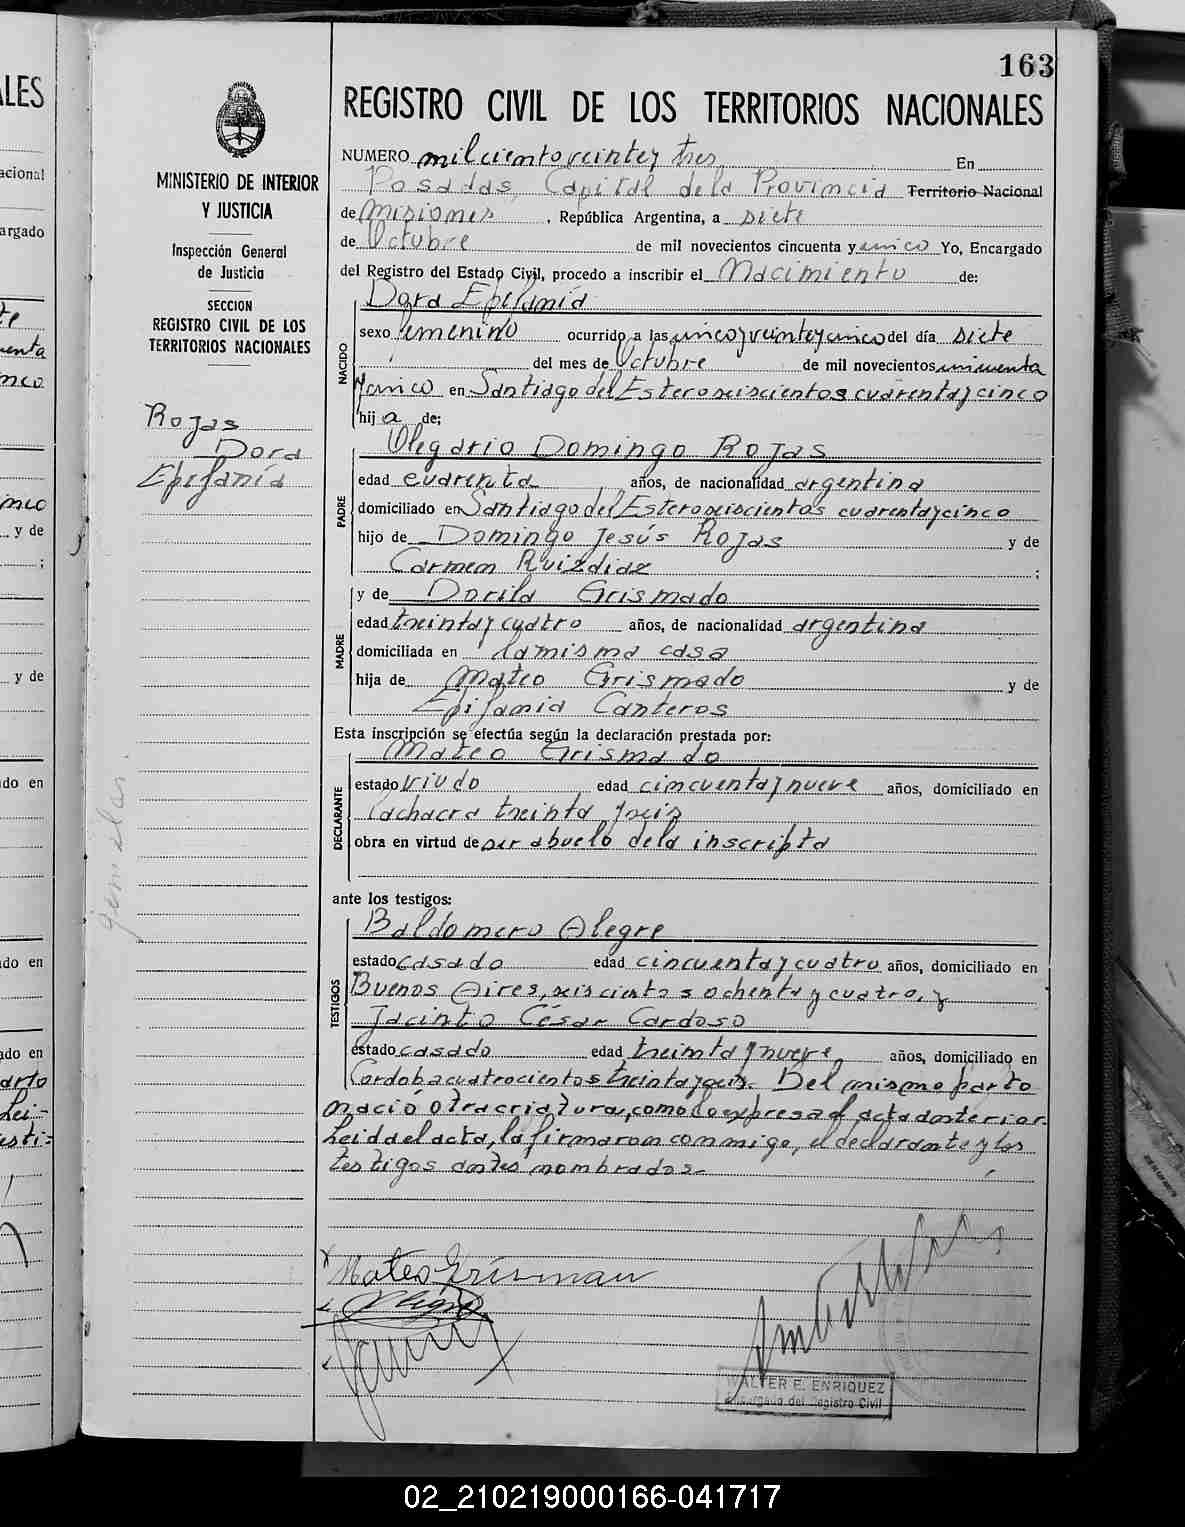 163
REGISTRO CIVIL DE LOS TERRITORIOS NACIONALES
MINISTERIO DE INTERIOR
Y JUSTICIA
Inspección General
de Justicia
SECCION
REGISTRO CIVIL DE LOS
TERRITORIOS NACIONALES
Rojas
Dora
Epifanía
gemelar.
NUMERO mil ciento veinte y tres En
Posadas, Capital de la Provincia Territorio Nacional
de Misiones, República Argentina, a siete
de Octubre de mil novecientos cincuenta y unico Yo, Encargado
del Registro del Estado Civil, procedo a inscribir el Nacimiento de:
NACIDO
Dora Epifanía
sexo femenino ocurrido a las cinco y veinte y cinco del día siete
del mes de Octubre de mil novecientos cincuenta
y unico en Santiago del Estero seiscientos cuarenta y cinco
hija de;
PADRE
Olegario Domingo Rojas
edad cuarenta años, de nacionalidad argentina
domiciliado en Santiago del Estero seiscientos cuarenta y cinco
hijo de Domingo Jesús Rojas y de
Carmen Ruizdiaz ;
MADRE
y de Dorila Grismado
edad treinta y cuatro años, de nacionalidad argentina
domiciliada en la misma casa
hija de Mateo Grismado y de
Epifania Canteros
Esta inscripción se efectúa según la declaración prestada por:
DECLARANTE
Mateo Grismado
estado viudo edad cincuenta y nueve años, domiciliado en
la chacra treinta y seis
obra en virtud de ser abuelo de la inscripta
ante los testigos:
TESTIGOS
Baldomero Alegre
estado casado edad cincuenta y cuatro años, domiciliado en
Buenos Aires, seiscientos ochenta y cuatro, y
Jacinto César Cardoso
estado casado edad treinta y nueve años, domiciliado en
Cordoba cuatrocientos treinta y seis. Del mismo parto
nació otra criatura, como lo expresa el acta anterior.
Leida el acta, la firmaron conmigo, el declarante y los
testigos antes nombrados.-
Mateo Grisman
WALTER E. ENRIQUEZ
Encargado del Registro Civil
02_210219000166-041717